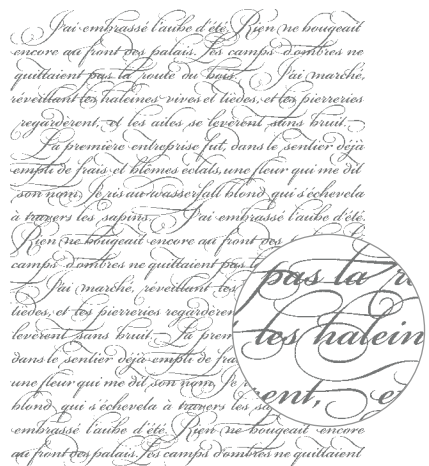 J'ai embrassé l'aube d'été. Rien ne bougeait
encore au front des palais. Les camps d'ombres ne
quittaient pas la route du bois. J'ai marché,
réveillant les haleines vives et tièdes, et les pierreries
regardèrent, et les ailes se levèrent sans bruit.
La première entreprise fut, dans le sentier déjà
empli de frais et blêmes éclats, une fleur qui me dit
son nom. Je ris au wasserfall blond qui s'échevela
à travers les sapins. J'ai embrassé l'aube d'été.
Rien ne bougeait encore au front des
camps d'ombres ne quittaient pas
J'ai marché, réveillant les
tièdes, et les pierreries regardèren
levèrent sans bruit. La prem
dans le sentier déjà empli de fra
une fleur qui me dit son nom. Je r
blond qui s'échevela à travers les sa
embrassé l'aube d'été. Rien ne bougeait encore
au front des palais. Les camps d'ombres ne quittaient
pas la r
les halein
rent, et